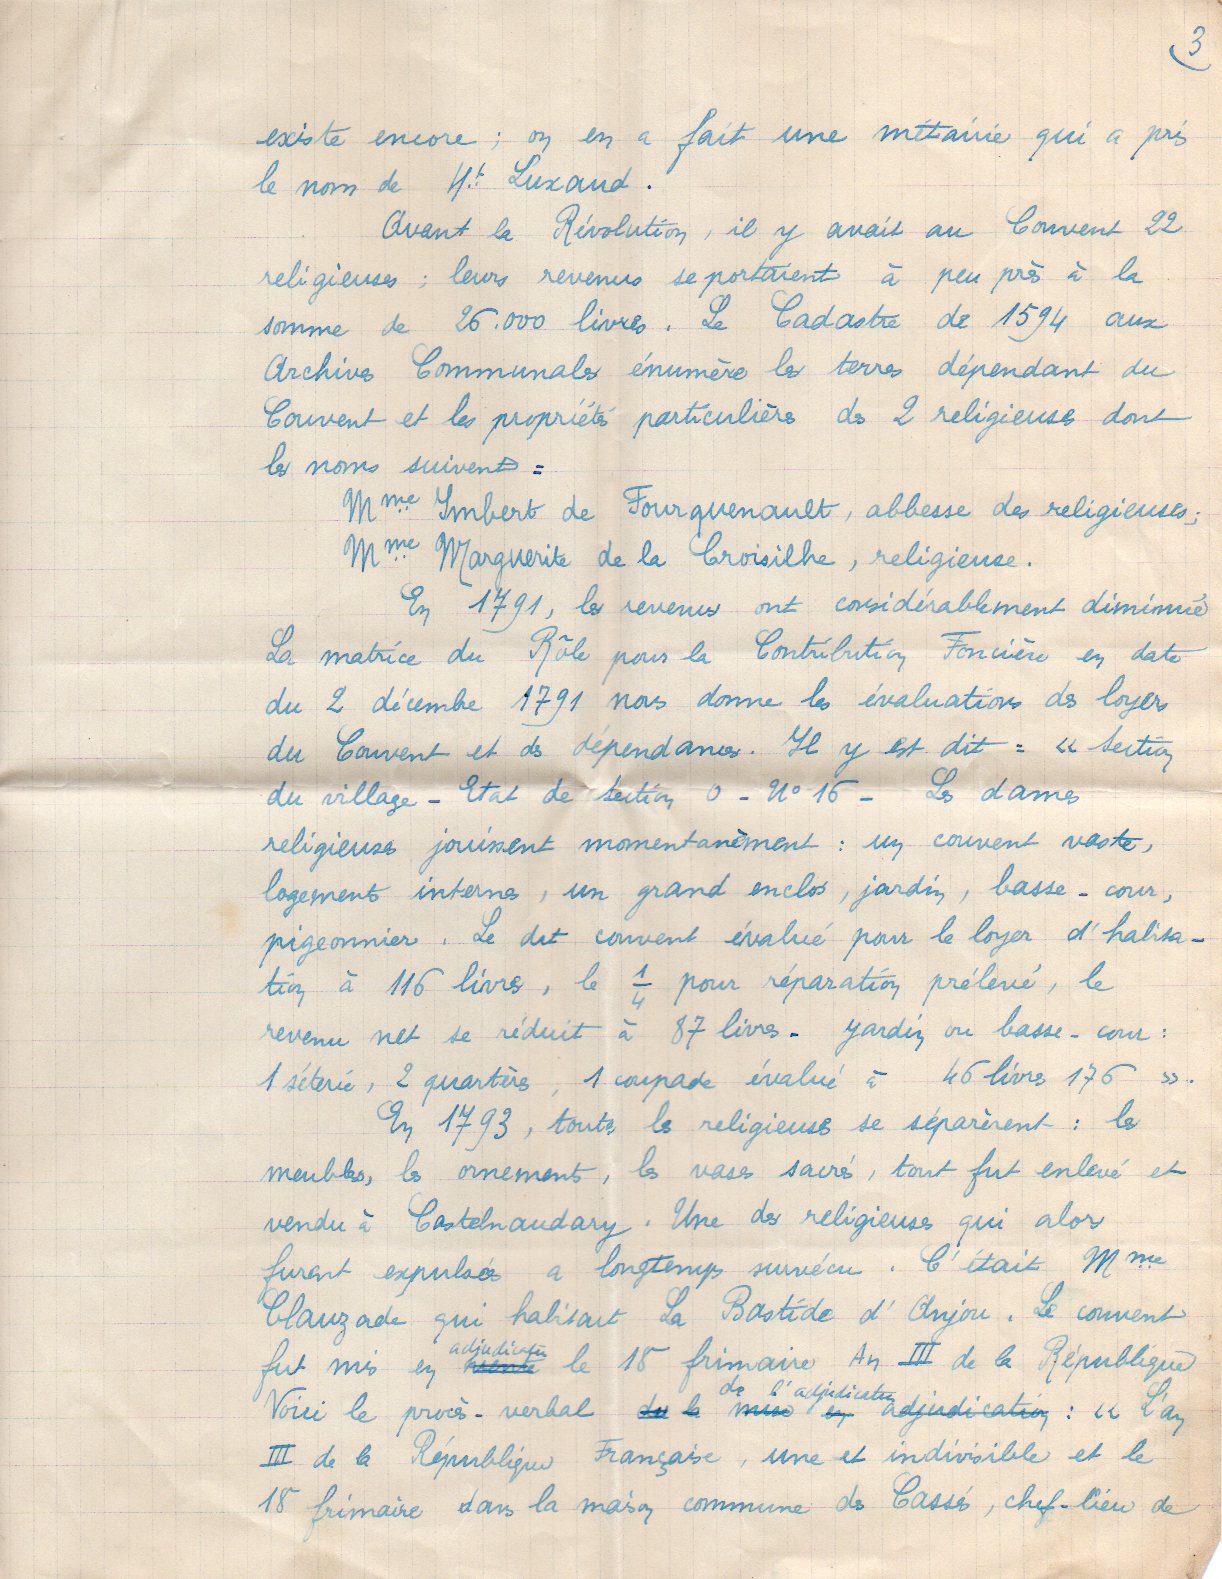 3
existe encore ; on en a fait une métairie qui a pris
le nom de St Luxaud.
Avant la Révolution, il y avait au Couvent 22
religieuses ; leurs revenus se portaient à peu près à la
somme de 26.000 livres. Le Cadastre de 1594 aux
Archives Communales énumère les terres dépendant du
Couvent et les propriétés particulières des 2 religieuses dont
les noms suivent =
Mme Imbert de Fourquenault, abbesse des religieuses ;
Mme Marguerite de la Croisilhe, religieuse.
En 1791, les revenus ont considérablement diminué
La matrice du Rôle pour la Contribution Foncière en date
du 2 décembre 1791 nous donne les évaluations des loyers
du Couvent et des dépendances. Il y est dit = « Section
du village - Etat de Section O - No 16 - Les dames
religieuses jouissent momentanèment : un couvent vaste,
logements internes, un grand enclos, jardin, basse-cour,
pigeonnier. Le dit couvent évalué pour le loyer d'habita-
tion à 116 livres, le 1/4 pour réparation prélevé, le
revenu net se réduit à 87 livres - Jardin ou basse-cour :
1 séterée, 2 quartères, 1 coupade évalué à 46 livres 176 ».
En 1793, toutes les religieuses se séparèrent : les
meubles, les ornements, les vases sacrés, tout fut enlevé et
vendu à Castelnaudary. Une des religieuses qui alors
furent expulsées a longtemps survécu. C'était Mme
Clauzade qui habitait La Bastide d'Anjou. Le couvent
adjudication
fut mis en vente le 18 frimaire An III de la République
de l'adjudication
Voici le procès-verbal de la mise en adjudication : « L'an
III de la République Française, une et indivisible et le
18 frimaire dans la maison commune des Cassés, chef-lieu de